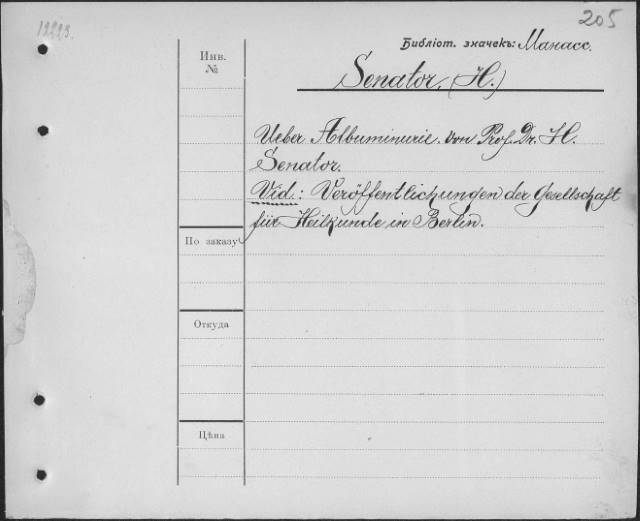 205
Библіот. значекъ: Манасс.
Инв. №
Senator. (H.)
Ueber Albuminurie. von Prof. Dr. H.
Senator.
Vid.: Veröffentlichungen der Gesellschaft
für Heilkunde in Berlin.
По заказу
Откуда
Цѣна